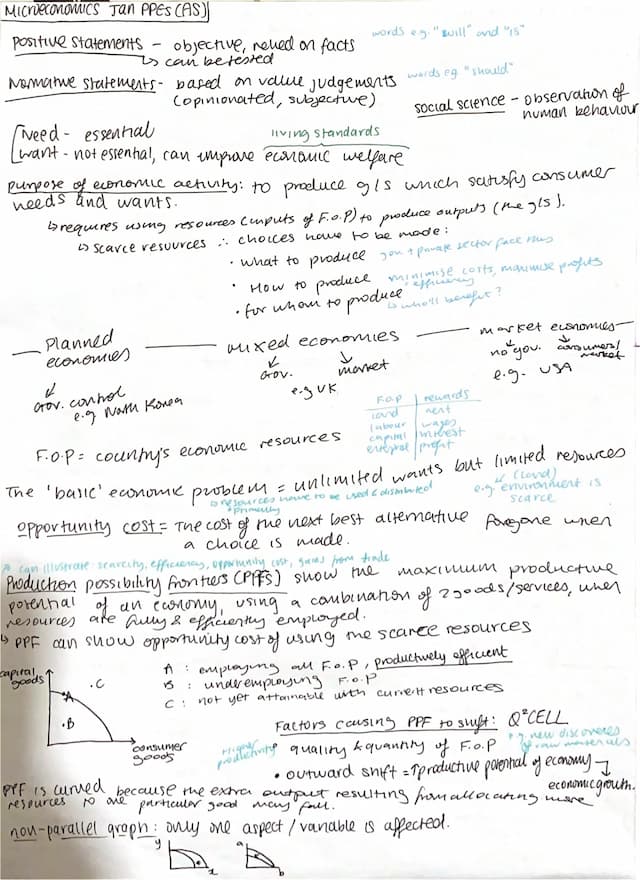 MICROECONOMICS JAN PPES (AS)
Positive statements - objective, relied on facts
words e.g. "will" and "is"
↳ can be tested
Normative statements - based on value judgements
words eg "should"
(opinionated, subjective)
social science - observation of
human behaviour
Need - essential
living standards
want - not essential, can improve economic welfare
purpose of economic activity: to produce g/s which satisfy consumer
needs and wants.
↳ requires using resources (inputs of F.o.P) to produce outputs (the g/s).
↳ scarce resources ∴ choices have to be made:
• what to produce gov + private sector face this
• How to produce minimise costs, maximise profits
• efficiency
• for whom to produce
↳ who'll benefit?
Planned economies
mixed economies
market economies
Gov. control
e.g North Korea
Gov. market
e.g UK
no gov. consumers/market
e.g. USA
F.O.P rewards
land rent
labour wages
capital interest
profit
F.O.P = country's economic resources
The 'basic' economic problem = unlimited wants but limited resources
↳ resources have to be used & distributed
(land)
e.g. environment is
scarce
opportunity cost = The cost of the next best alternative foregone when
a choice is made.
↗ can illustrate: scarcity, efficiency, opportunity cost, gains from trade
Production possibility frontiers (PPFs) show the maximum productive
potential of an economy, using a combination of 2 goods/services, when
resources are fully & efficiently employed.
↳ PPF can show opportunity cost of using the scarce resources
capital
goods
A
B
C
consumer
goods
A : employing all F.O.P, productively efficient
B : underemploying F.O.P
C : not yet attainable with current resources
Factors causing PPF to shift: Q²CELL
Higher
productivity
• quality & quantity of F.O.P
e.g. new discoveries
of raw materials
• outward shift = ↑ productive potential of economy →
economic growth.
PPF is curved because the extra output resulting from allocating more
resources to one particular good may fall.
non-parallel graph: only one aspect / variable is affected.
y
x
a
b